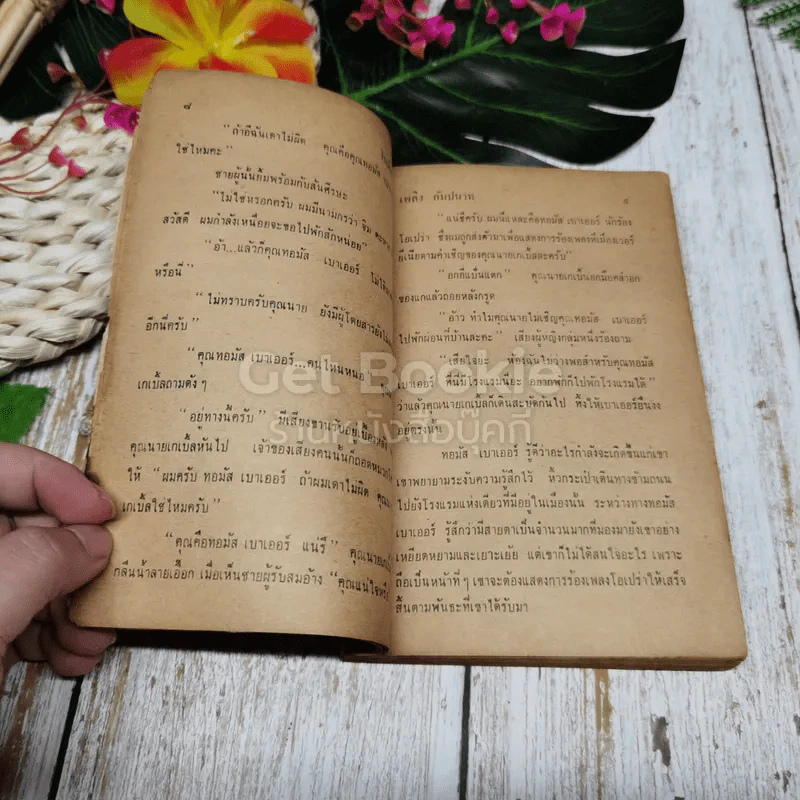 ๘
“ถ้าอีฉันเดาไม่ผิด คุณคือคุณทอมัส
ใช่ไหมคะ”
ชายผู้นั้นยิ้มพร้อมกับสั่นศีรษะ
“ไม่ใช่หรอกครับ ผมมีนามกรว่า จิม
สวัสดี ผมกำลังเหนื่อยจะขอไปพักสักหน่อย”
“อ้า...แล้วก็คุณทอมัส เบาเออร์ ไม่ได้
หรือนี่”
“ไม่ทราบครับคุณนาย ยังมีผู้โดยสารยัง
อีกนี่ครับ”
“คุณทอมัส เบาเออร์...คนไหนหนอ”
เกเบิ้ลถามดัง ๆ
“อยู่ทางนี้ครับ” มีเสียงขานรับอยู่เบื้องหลัง
คุณนายเกเบิ้ลหันไป เจ้าของเสียงคนนั้นก็ถอดหมวก
ให้ “ผมครับ ทอมัส เบาเออร์ ถ้าผมเดาไม่ผิด
เกเบิ้ลใช่ไหมครับ”
“คุณคือทอมัส เบาเออร์ แน่รึ” คุณนายเก
กลืนน้ำลายเอื้อก เมื่อเห็นชายผู้รับสมอ้าง “คุณแน่ใจหรือ
เพลิง กัมปนาท
๙
“แน่ซีครับ ผมนี่แหละคือทอมัส เบาเออร์ นักร้อง
โอเปร่า ซึ่งผมถูกส่งตัวมาเพื่อแสดงการร้องเพลงที่เมืองเวอร์
ยีเนียตามคำเชิญของคุณนายเกเบิ้ลละครับ”
“อกอีแป้นแตก” คุณนายเกเบิ้นยกมือคลำอก
ของแกแล้วถอยหลังกรูด
“อ้าว ทำไมคุณนายไม่เชิญคุณทอมัส เบาเออร์
ไปพักผ่อนที่บ้านละคะ” เสียงผู้หญิงกลุ่มหนึ่งร้องถาม
“เสียใจยะ ห้องฉันไม่ว่างพอสำหรับคุณทอมัส
เบาเออร์ ที่นี่มีโรงแรมนี่ยะ อยากพักก็ไปพักโรงแรมได้”
ว่าแล้วคุณนายเกเบิ้ลก็เดินสะบัดก้นไป ทิ้งให้เบาเออร์ยืนงง
อยู่ตรงนั้น
ทอมัส เบาเออร์ รู้ดีว่าอะไรกำลังจะเกิดขึ้นแก่เขา
เขาพยายามระงับความรู้สึกไว้ หิ้วกระเป๋าเดินทางข้ามถนน
ไปยังโรงแรมแห่งเดียวที่มีอยู่ในเมืองนั้น ระหว่างทางทอมัส
เบาเออร์ รู้สึกว่ามีสายตาเป็นจำนวนมากที่มองมายังเขาอย่าง
เหยียดหยามและเยาะเย้ย แต่เขาก็ไม่ได้สนใจอะไร เพราะ
ถือเป็นหน้าที่ๆ เขาจะต้องแสดงการร้องเพลงโอเปร่าให้เสร็จ
สิ้นตามพันธะที่เขาได้รับมา
Get Bookie
ร้านหนังสือบุ๊คกี้